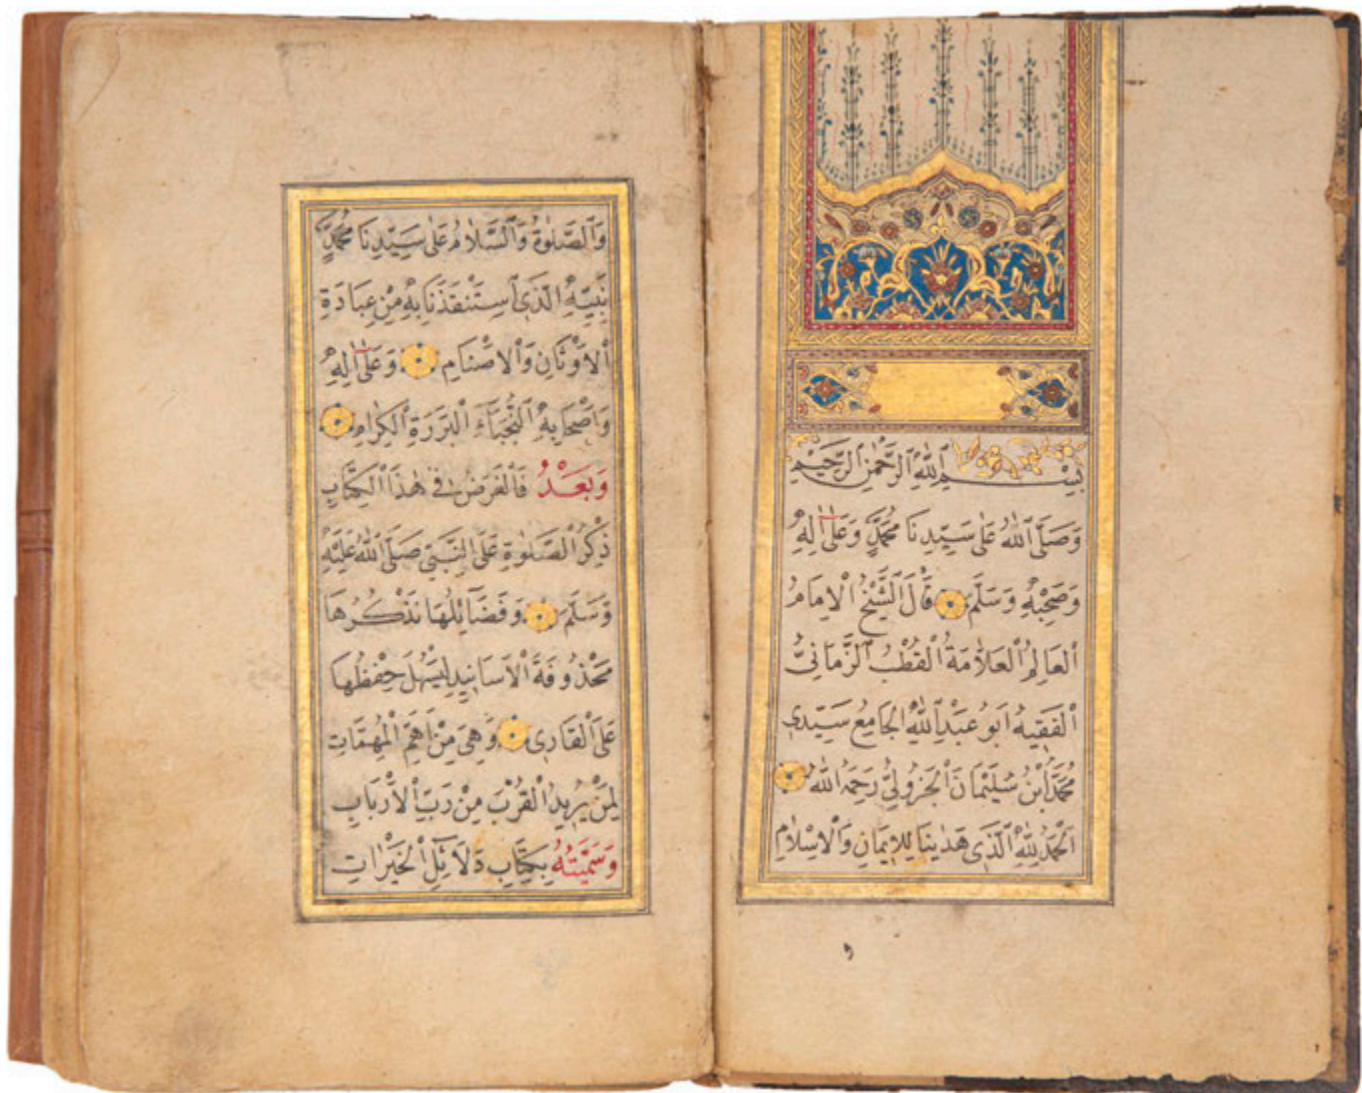 بِسْمِ ٱللّٰهِ ٱلرَّحْمٰنِ ٱلرَّحِيمِ
وَصَلَّى ٱللّٰهُ عَلٰى سَيِّدِنَا مُحَمَّدٍ وَعَلٰى اٰلِهِ
وَصَحْبِهِ وَسَلَّمَ قَالَ ٱلشَّيْخُ ٱلْاِمَامُ
ٱلْعَالِمُ ٱلْعَلَّامَةُ ٱلْقُطْبُ ٱلزَّمَانِىُّ
ٱلْفَقِيهُ اَبُو عَبْدِ ٱللّٰهِ ٱلْجَامِعُ سَيِّدِى
مُحَمَّدُ ابْنُ سُلَيْمَانَ ٱلْجَزُولِىُّ رَحِمَهُ ٱللّٰهُ
اَلْحَمْدُ لِلّٰهِ ٱلَّذِى هَدٰينَا لِلْاِيمَانِ وَٱلْاِسْلَامِ
وَٱلصَّلٰوةُ وَٱلسَّلَامُ عَلٰى سَيِّدِنَا مُحَمَّدٍ
نَبِيِّهِ ٱلَّذِى ٱسْتَنْقَذَنَا بِهِ مِنْ عِبَادَةِ
ٱلْاَوْثَانِ وَٱلْاَصْنَامِ وَعَلٰى اٰلِهِ
وَاَصْحَابِهِ ٱلنُّجَبَاءِ ٱلْبَرَرَةِ ٱلْكِرَامِ
وَبَعْدُ فَٱلْغَرَضُ فِى هٰذَا ٱلْكِتَابِ
ذِكْرُ ٱلصَّلٰوةِ عَلَى ٱلنَّبِىِّ صَلَّى ٱللّٰهُ عَلَيْهِ
وَسَلَّمَ وَفَضَائِلُهَا نَذْكُرُهَا
مَحْذُوفَةَ ٱلْاَسَانِيدِ لِيَسْهُلَ حِفْظُهَا
عَلَى ٱلْقَارِى وَهِىَ مِنْ اَهَمِّ ٱلْمُهِمَّاتِ
لِمَنْ يُرِيدُ ٱلْقُرْبَ مِنْ رَبِّ ٱلْاَرْبَابِ
وَسَمَّيْتُهُ بِكِتَابِ دَلَائِلِ ٱلْخَيْرَاتِ